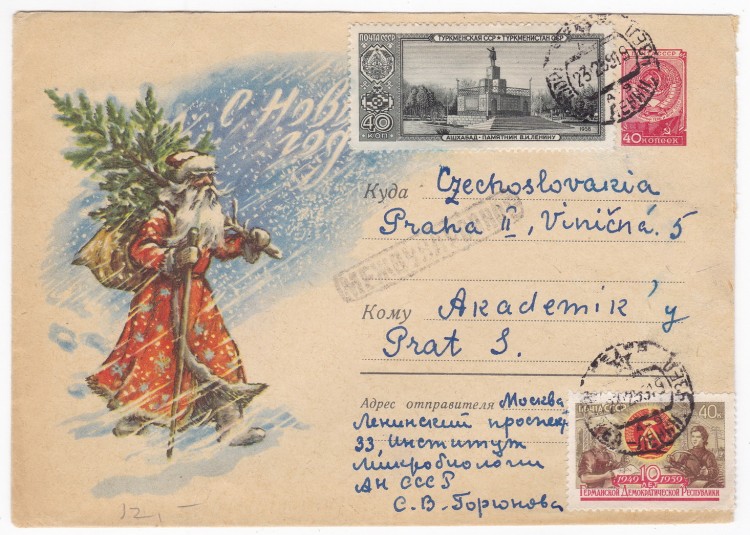 ПОЧТА СССР
ТУРКМЕНСКАЯ ССР ТУРКМЕНИСТАН ССР
40
КОП
АШХАБАД - ПАМЯТНИК В.И. ЛЕНИНУ
1958
40 КОПЕЕК
С Новы
Год
Куда
Czechoslovakia
Praha II, Viničná 5
МЕЖДУНАРОДНОЕ
Кому
Akademik
Prat S.
Адрес отправителя Москва
Ленинский проспект
33 Институт
Микробиологии
АН СССР
С.В. Горюнова
ПОЧТА СССР
40к
1949 10 1959
ЛЕТ
ГЕРМАНСКОЙ ДЕМОКРАТИЧЕСКОЙ РЕСПУБЛИКИ
12,-